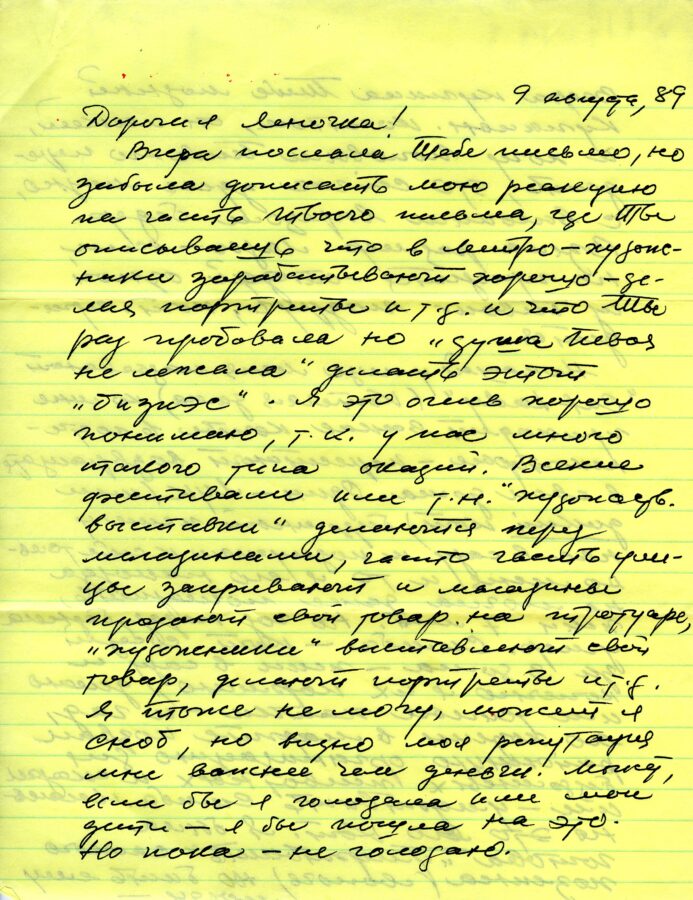 9 августа, 89
Дорогая Леночка!
Вчера послала Тебе письмо, но
забыла дописать мою реакцию
на часть Твоего письма, где Ты
описываешь что в метро – худож-
ники зарабатывают хорошо – де-
лая портреты и т.д. и что Ты
раз пробовала но „душа Твоя
не лежала" делать этот
„бизнэс". Я это очень хорошо
понимаю, т.к. у нас много
такого типа оказий. Всякие
фестивали или т.н. "художеств.
выставки" делаются перед
магазинами, часто часть ули-
цы закрывают и магазины
продают свой товар на тротуаре,
„художники" выставляют свой
товар, делают портреты и т.д.
Я тоже не могу, может я
сноб, но видно моя репутация
мне важнее чем деньги. Может,
если бы я голодала или мои
дети – я бы пошла на это.
Но пока – не голодаю.